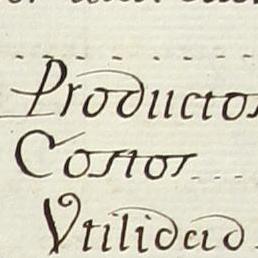 Productos
Costos
Vtilidad